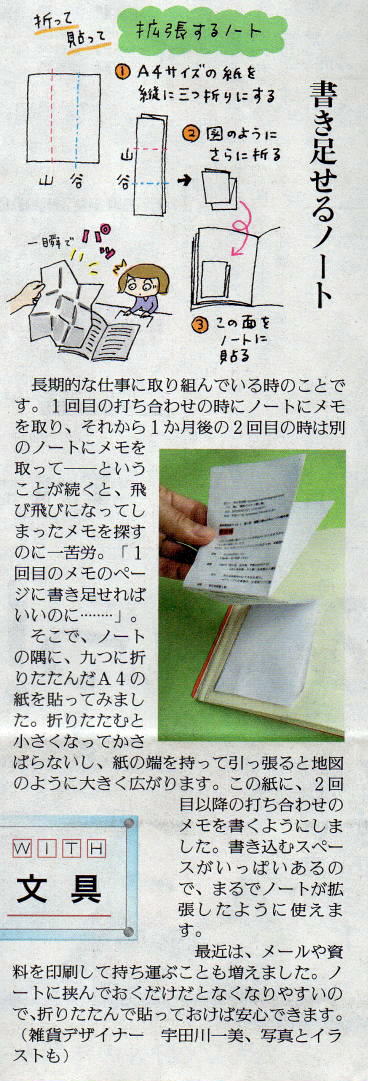 折って
貼って
拡張するノート
書き足せるノート
① A4サイズの紙を
縦に三つ折りにする
山 谷
② 図のように
さらに折る
山
谷
一瞬で
パッ
③ この面を
ノートに
貼る
長期的な仕事に取り組んでいる時のことで
す。1回目の打ち合わせの時にノートにメモ
を取り、それから1か月後の2回目の時は別
のノートにメモを
取って――という
ことが続くと、飛
び飛びになってし
まったメモを探す
のに一苦労。「1
回目のメモのペー
ジに書き足せれば
いいのに……」。
そこで、ノート
の隅に、九つに折
りたたんだA4の
紙を貼ってみまし
た。折りたたむと
小さくなってかさ
ばらないし、紙の端を持って引っ張ると地図
のように大きく広がります。この紙に、2回
目以降の打ち合わせの
メモを書くようにしま
した。書き込むスペー
スがいっぱいあるの
で、まるでノートが拡
張したように使えま
す。
最近は、メールや資
料を印刷して持ち運ぶことも増えました。ノ
ートに挟んでおくだけだとなくなりやすいの
で、折りたたんで貼っておけば安心できます。
(雑貨デザイナー 宇田川一美、写真とイラ
ストも)
WITH
文具